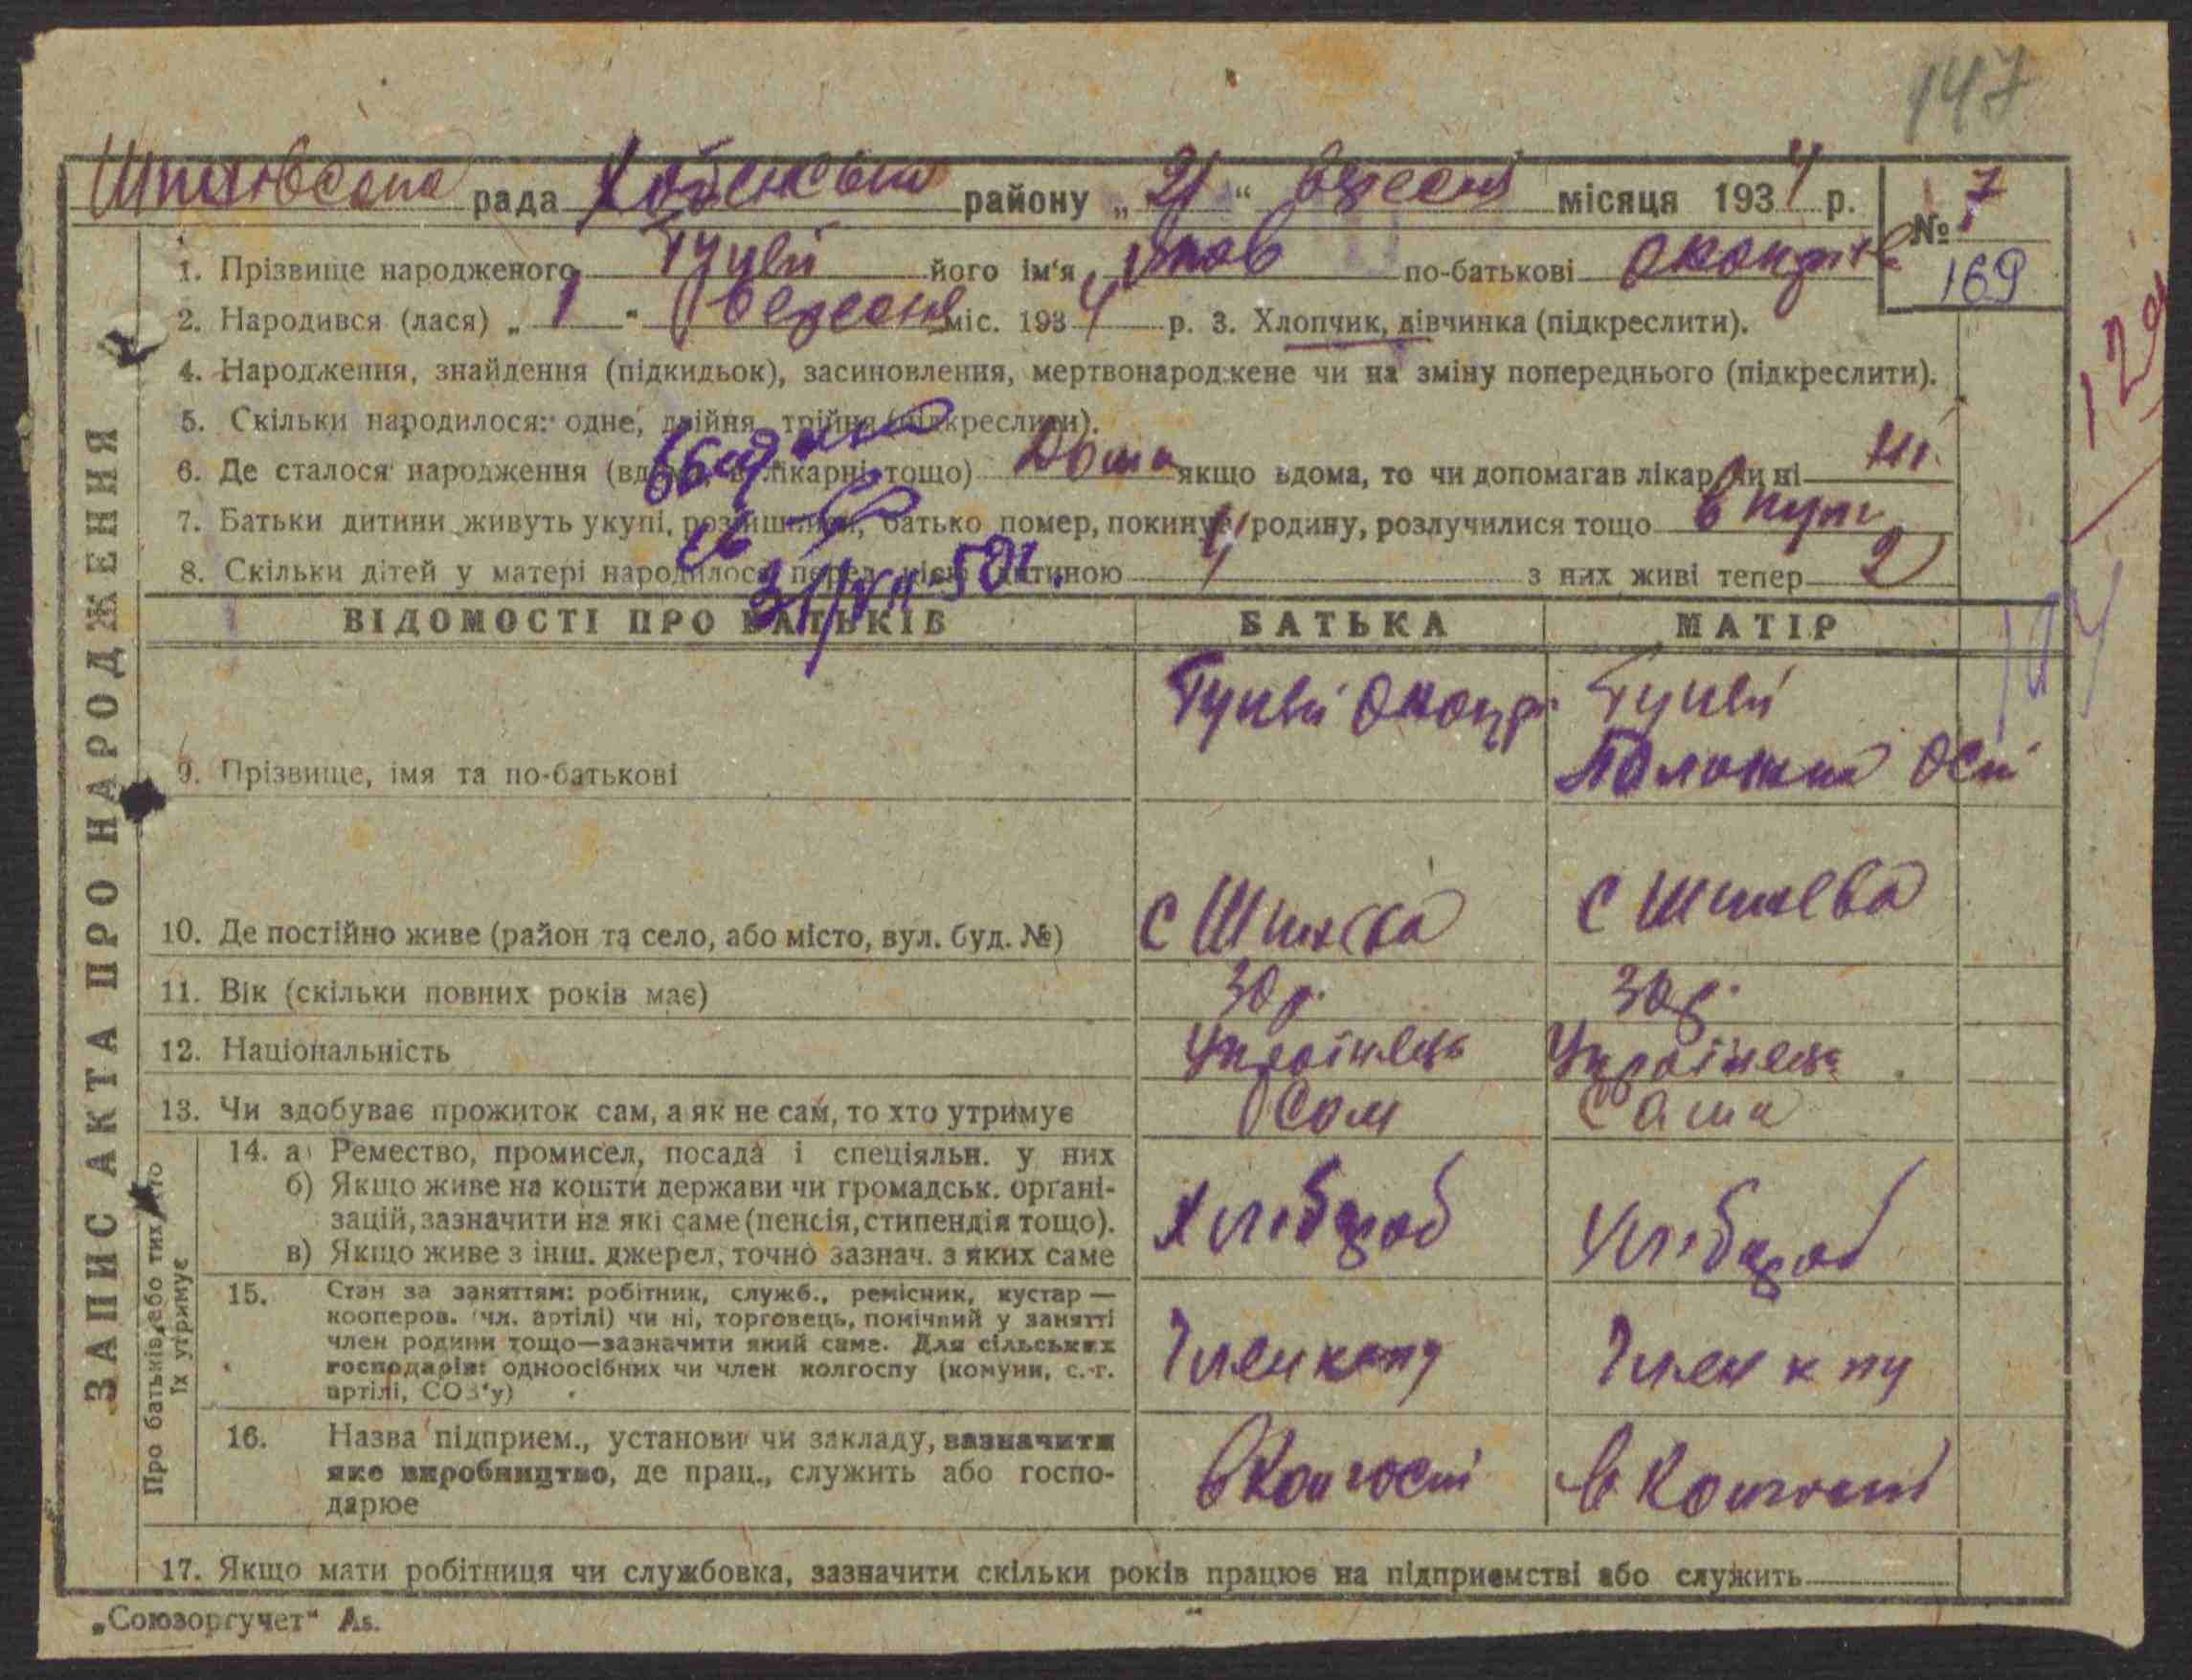 147
рада районну „21“ вересня місяця 1934 р.
№ 7
169
1. Прізвище народженого його ім'я по-батькові
2. Народився (лася) „1“ вересня міс. 1934 р. 3. Хлопчик, дівчинка (підкреслити).
129
4. Народження, знайдення (підкидьок), засиновлення, мертвонароджене чи на зміну попереднього (підкреслити).
5. Скільки народилося: одне, двійня, трійня (підкреслити).
6. Де сталося народження (вдома, в лікарні тощо) Дома якщо вдома, то чи допомагав лікар чи ні ні.
7. Батьки дитини живуть укупі, розійшлися, батько помер, покинув родину, розлучилися тощо
8. Скільки дітей у матері народилося перед цією дитиною з них живі тепер 2
31/VII-50г.
ВІДОМОСТІ ПРО БАТЬКІВ БАТЬКА МАТІР
9. Прізвище, імя та по-батькові
10. Де постійно живе (район та село, або місто, вул. буд. №)
11. Вік (скільки повних років має) 30 р. 30 р.
12. Національність Українець Українець
13. Чи здобуває прожиток сам, а як не сам, то хто утримує Сам Сама
14. а) Ремество, промисел, посада і спеціяльн. у них
б) Якщо живе на кошти держави чи громадськ. органі-
зацій, зазначити на які саме (пенсія, стипендія тощо).
в) Якщо живе з інш. джерел, точно зазнач. з яких саме
Хлібороб Хлібороб
15. Стан за заняттям: робітник, служб., ремісник, кустар —
кооперов. (чл. артілі) чи ні, торговець, помічний у занятті
член родини тощо—зазначити який саме. Для сільських
господарів: одноосібних чи член колгоспу (комуни, с.-г.
артілі, СОЗ'у)
Член Член
16. Назва підприєм., установи чи закладу, зазначити
яке виробництво, де прац., служить або госпо-
дарює
в Колгоспі в Колгоспі
17. Якщо мати робітниця чи службовка, зазначити скільки років працює на підприємстві або служить
ЗАПИС АКТА ПРО НАРОДЖЕННЯ
Про батьків, або тих хто
їх утримує
„Союзоргучет“ Аs.